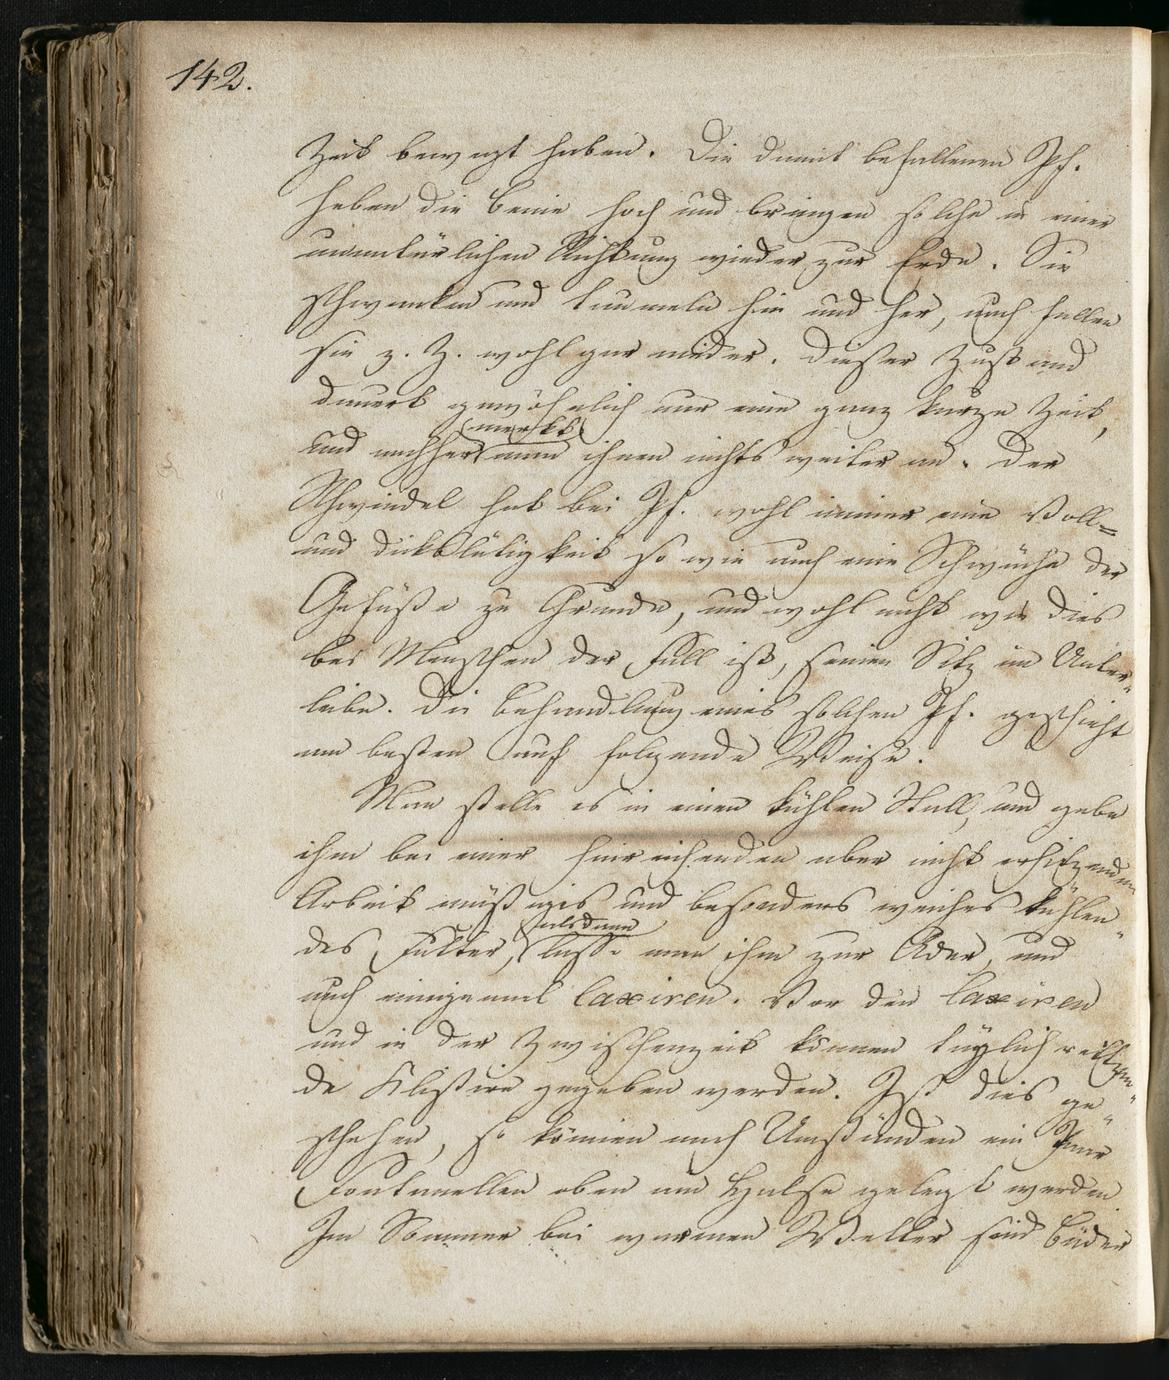 142.
Zeit bewegt haben. Die damit befallenen Pf.
heben die Beine hoch und bringen solche in einer
unnatürlichen Richtung wieder zur Erde. Sie
schwanken und taumeln hin und her, auch fallen
sie z. Z. wohl gar nieder. Dieser Zustand
dauert gewöhnlich nur eine ganz kurze Zeit,
merkt
und nachher man ihnen nichts weiter an. Der
Schwindel hat bei Pf. wohl immer eine Voll=
und Dickblütigkeit so wie auch eine Schwäche der
Gefäße zu Grunde, und wohl nicht wie dies
bei Menschen der Fall ist, seinen Sitz im Unter„
leibe. Die Behandlung eines solchen Pf. geschieht
am besten auf folgende Weise.
Man stelle es in einen kühlen Stall, und gebe
ihm bei einer hinreichenden aber nicht erhitzenden
Arbeit mäßiges und besonders weiches kühlen„
alsdann
des Futter, lasse man ihm zur Ader, und
auch einigemal laxiren. Vor den laxiren
und in der Zwischenzeit können täglich reitzen„
de Klistire gegeben werden. Ist dies ge„
schehen, so können nach Umständen ein Paar
Fontanellen oben am Halse gelegt werden
Im Sommer bei warmen Wetter sind Bäder